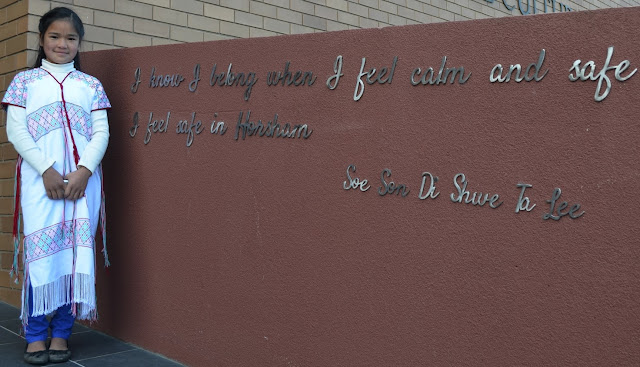 I know I belong when I feel calm and safe
I feel safe in Horsham
Soe Son Di Shwe Ta Lee